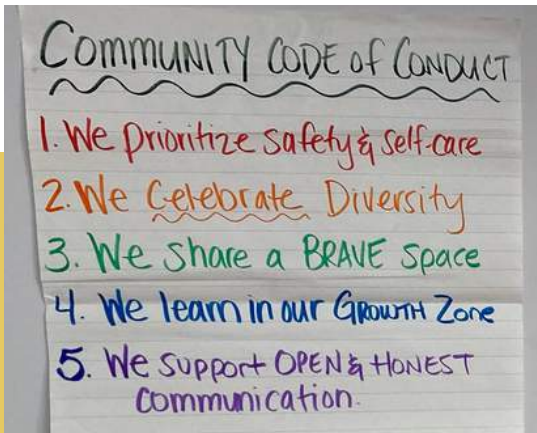 COMMUNITY CODE of CONDUCT
1. We prioritize safety & self-care
2. We Celebrate Diversity
3. We share a BRAVE space
4. We learn in our GROWTH Zone
5. We support OPEN & HONEST
communication.